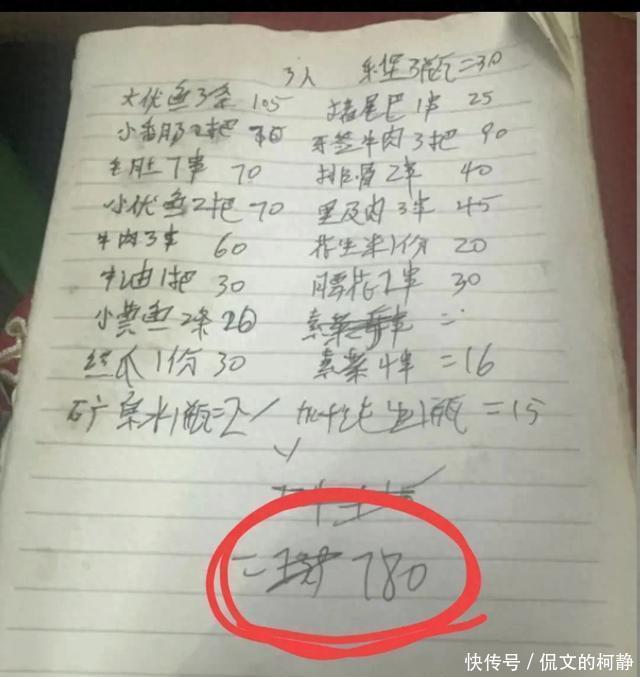 3人 乐堡3瓶=30
大优鱼3条 105 猪尾巴1串 25
小香肠2把 牙签牛肉3把 90
毛肚7串 70 排骨2串 40
小优鱼2把 70 里及肉3串 45
牛肉3串 60 花生米1份 20
牛油1把 30 腰花2串 30
小黄鱼2条 20 素菜 =
丝瓜1份 30 素菜4串 =16
矿泉水1瓶=2 加 纯生1瓶 =15
= 780
快传号/侃文的柯静